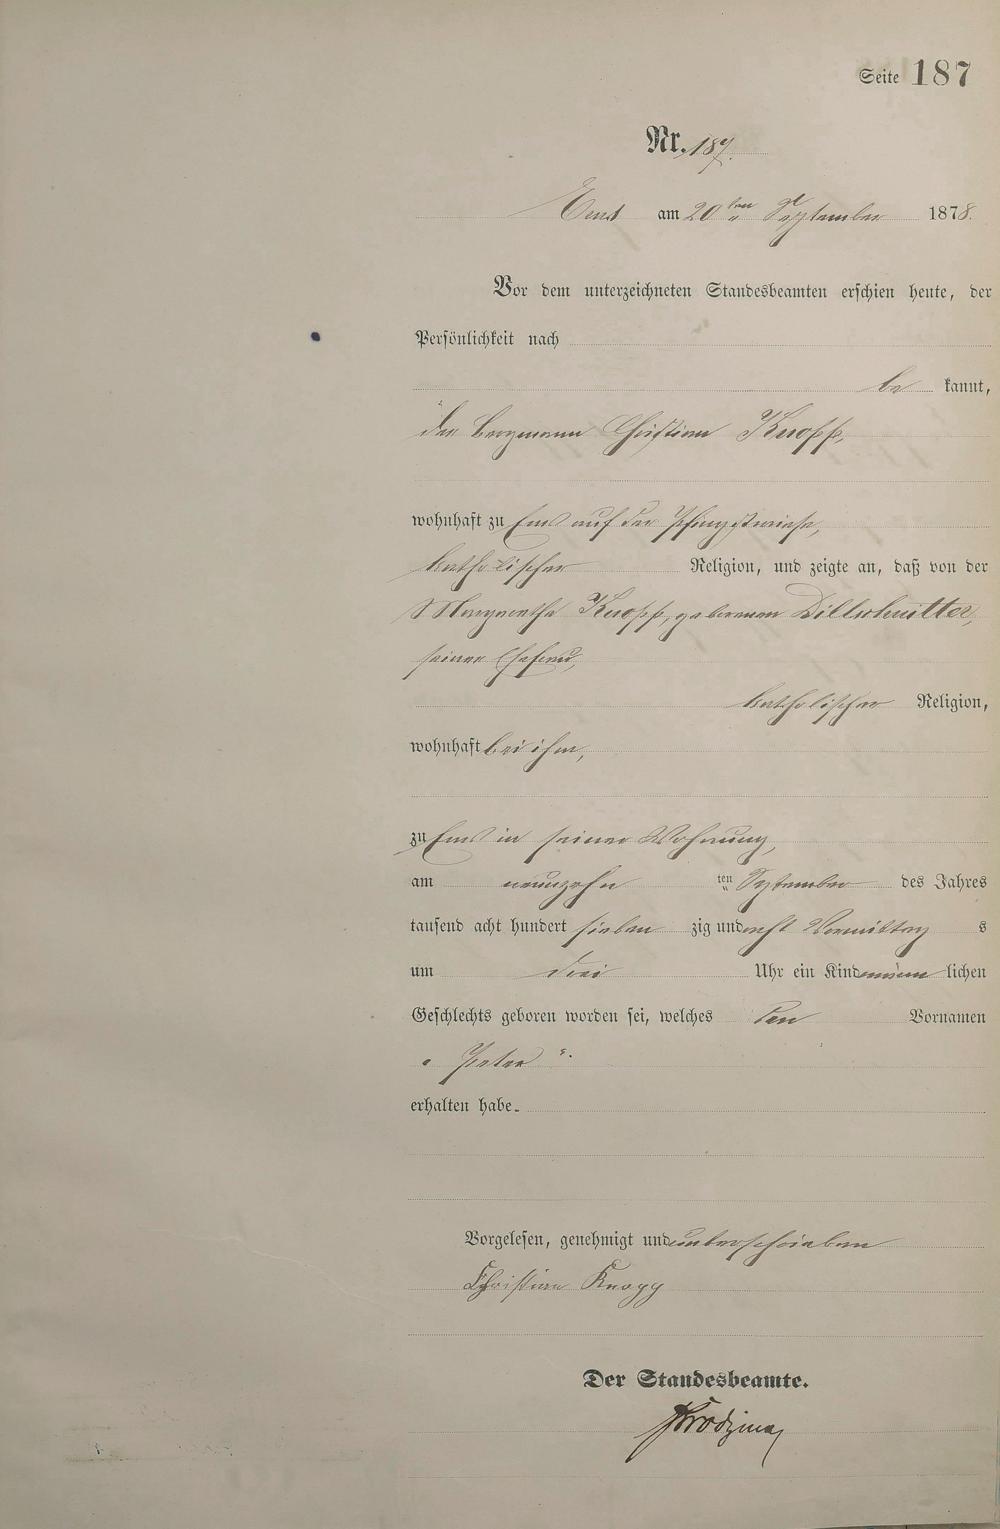 Seite 187
Nr. 187.
Ems am 20ten September 1878.
Vor dem unterzeichneten Standesbeamten erschien heute, der
Persönlichkeit nach
be kannt,
der Bergmann Christian Knopp,
wohnhaft zu Ems auf der Pfingstwiese,
katholischer Religion, und zeigte an, daß von der
Margarethe Knopp, geborenen Dillschnitter,
seiner Ehefrau,
katholischer Religion,
wohnhaft bei ihm,
zu Ems in seiner Wohnung,
am neunzehn ten September des Jahres
tausend acht hundert sieben zig und acht Vormittag s
um drei Uhr ein Kind männ lichen
Geschlechts geboren worden sei, welches den Vornamen
„Peter“
erhalten habe.
Vorgelesen, genehmigt und unterschrieben
Christian Knopp
Der Standesbeamte.